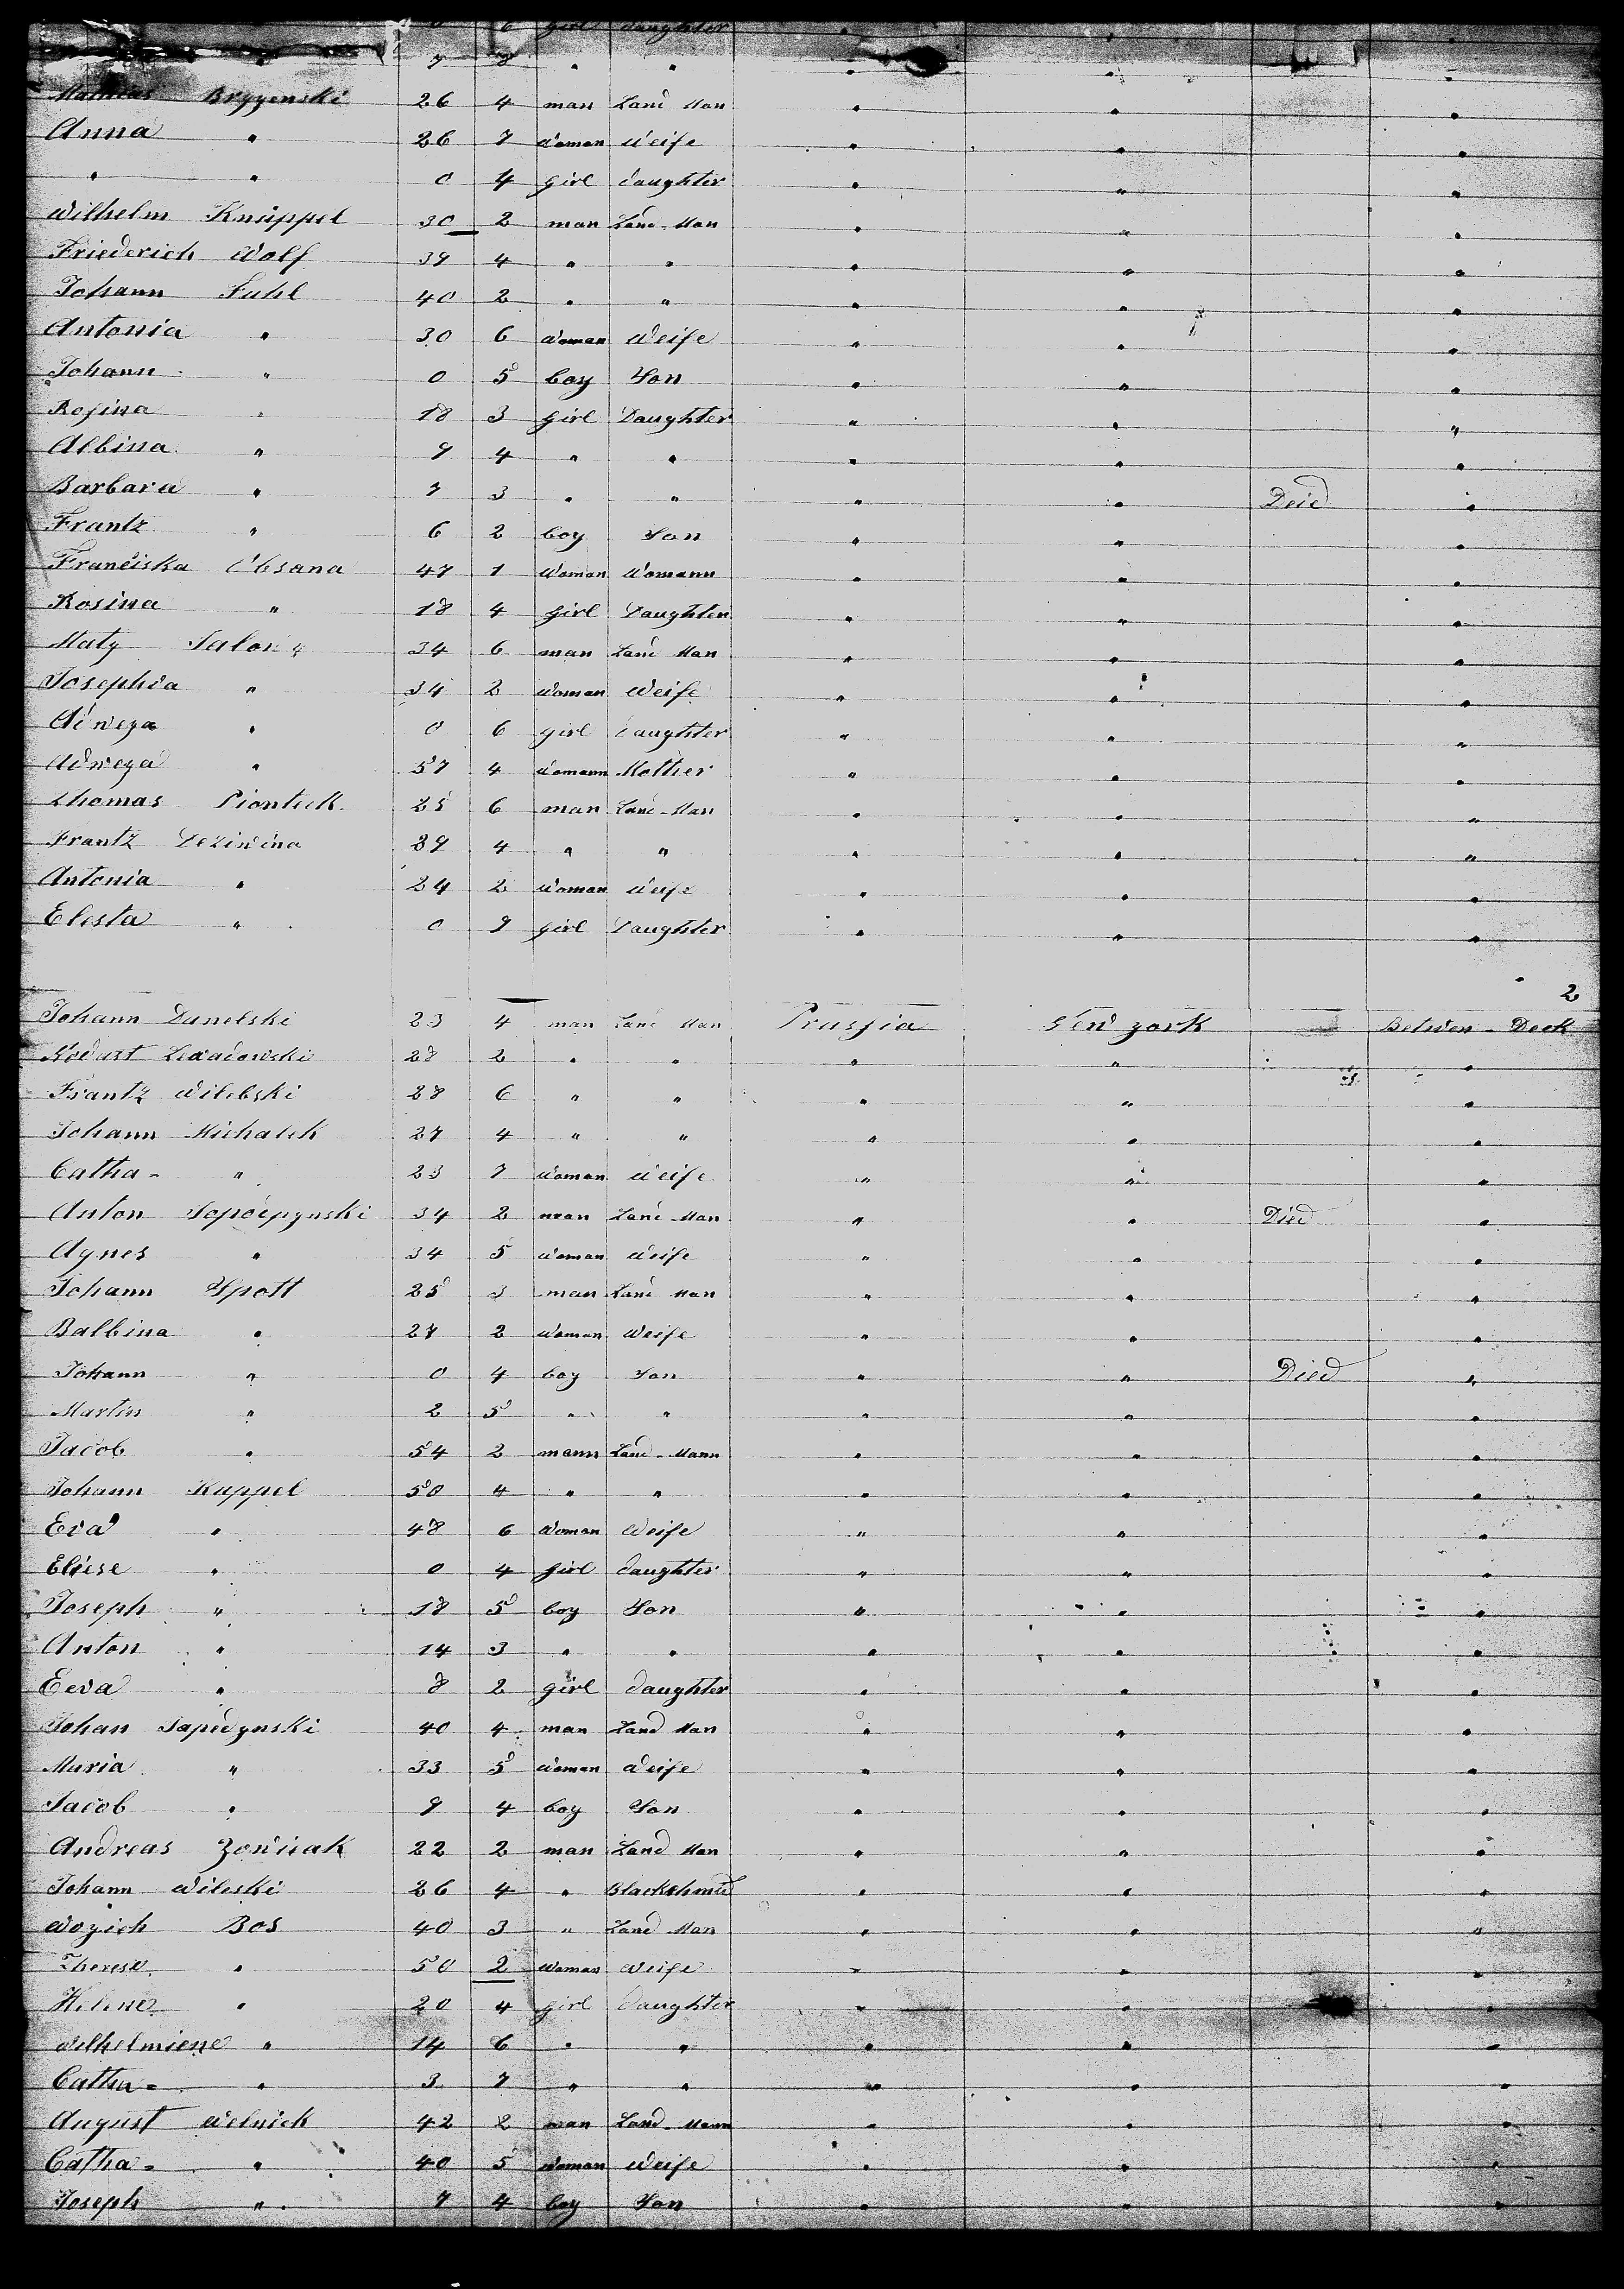 6 girl daughter "
" 7 " " " " " "
Mathias Bryzenski 26 4 man Land Man " " "
Anna " 26 7 Woman Weife " " "
" " 0 4 girl daughter " " "
Wilhelm Knüppel 30 2 man Land-Man " " "
Friederich Wolf 39 4 " " " " "
Johann Fuhl 40 2 " " " " "
Antonia " 30 6 Woman Weife " " "
Johann " 0 5 boy Son " " "
Rosina " 18 3 girl Daughter " " "
Albina " 9 4 " " " " "
Barbara " 7 3 " " " " Deid "
Frantz " 6 2 boy Son " " "
Franciska Obsana 47 1 Woman Womann " " "
Rosina " 18 4 girl Daughter " " "
Maty 34 6 man Land Man " " "
Josephia " 34 2 Woman Weife " " "
Adwega " 0 6 girl daughter " " "
Adwega " 57 4 Womann Mother " " "
Thomas Pionteck 25 6 man Land-Man " " "
Frantz 29 4 " " " " "
Antonia " 24 2 Woman Weife " " "
Elesta " 0 9 girl Daughter " " "
2
Johann Danelski 23 4 man Land Man Prussia New York Betwen-Deck
28 2 " " " " "
Frantz Wilebski 28 6 " " " " "
Johann Michaleck 27 4 " " " " "
Catha- " 23 7 Woman Weife " " "
Anton 34 2 man Land-Man " " Died "
Agnes " 34 5 Woman Weife " " "
Johann Spott 25 3 man Land Man " " "
Balbina " 27 2 Woman Weife " " "
Johann " 0 4 boy Son " " Died "
Martin " 2 5 " " " " "
Jacob " 54 2 mann Land-Mann " " "
Johann Kuppel 50 4 " " " " "
Eva " 48 6 Woman Weife " " "
Eliese " 0 4 girl daughter " " "
Joseph " 18 5 boy Son " " "
Anton " 14 3 " " " " "
Eeva " 8 2 girl daughter " " "
Johan Sapedzynski 40 4 man Land Man " " "
Maria " 33 5 Woman Weife " " "
Jacob " 9 4 boy Son " " "
Andreas Zowiak 22 2 man Land Man " " "
Johann Wileski 26 4 " Blackshmid " " "
Wozich Bos 40 3 " Land Man " " "
Therese " 50 2 Woman Weife " " "
Helene " 20 4 girl daughter " " "
Wilhelmiene " 14 6 " " " " "
Catha= " 3 7 " " " " "
August Welnick 42 2 man Land-Mann " " "
Catha= " 40 5 Woman Weife " " "
Joseph " 7 4 boy Son " " "